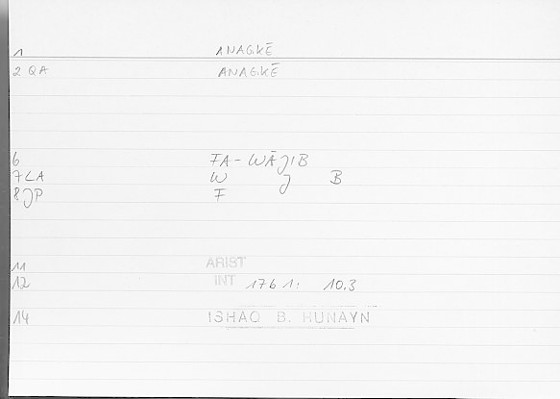 1 ANAGKĒ
2 QA ANAGKĒ
6 FA-WĀJIB
7 LA W J B
8 JP F
11 ARIST
12 INT 1761: 10.3
14 ISHAQ B. HUNAYN